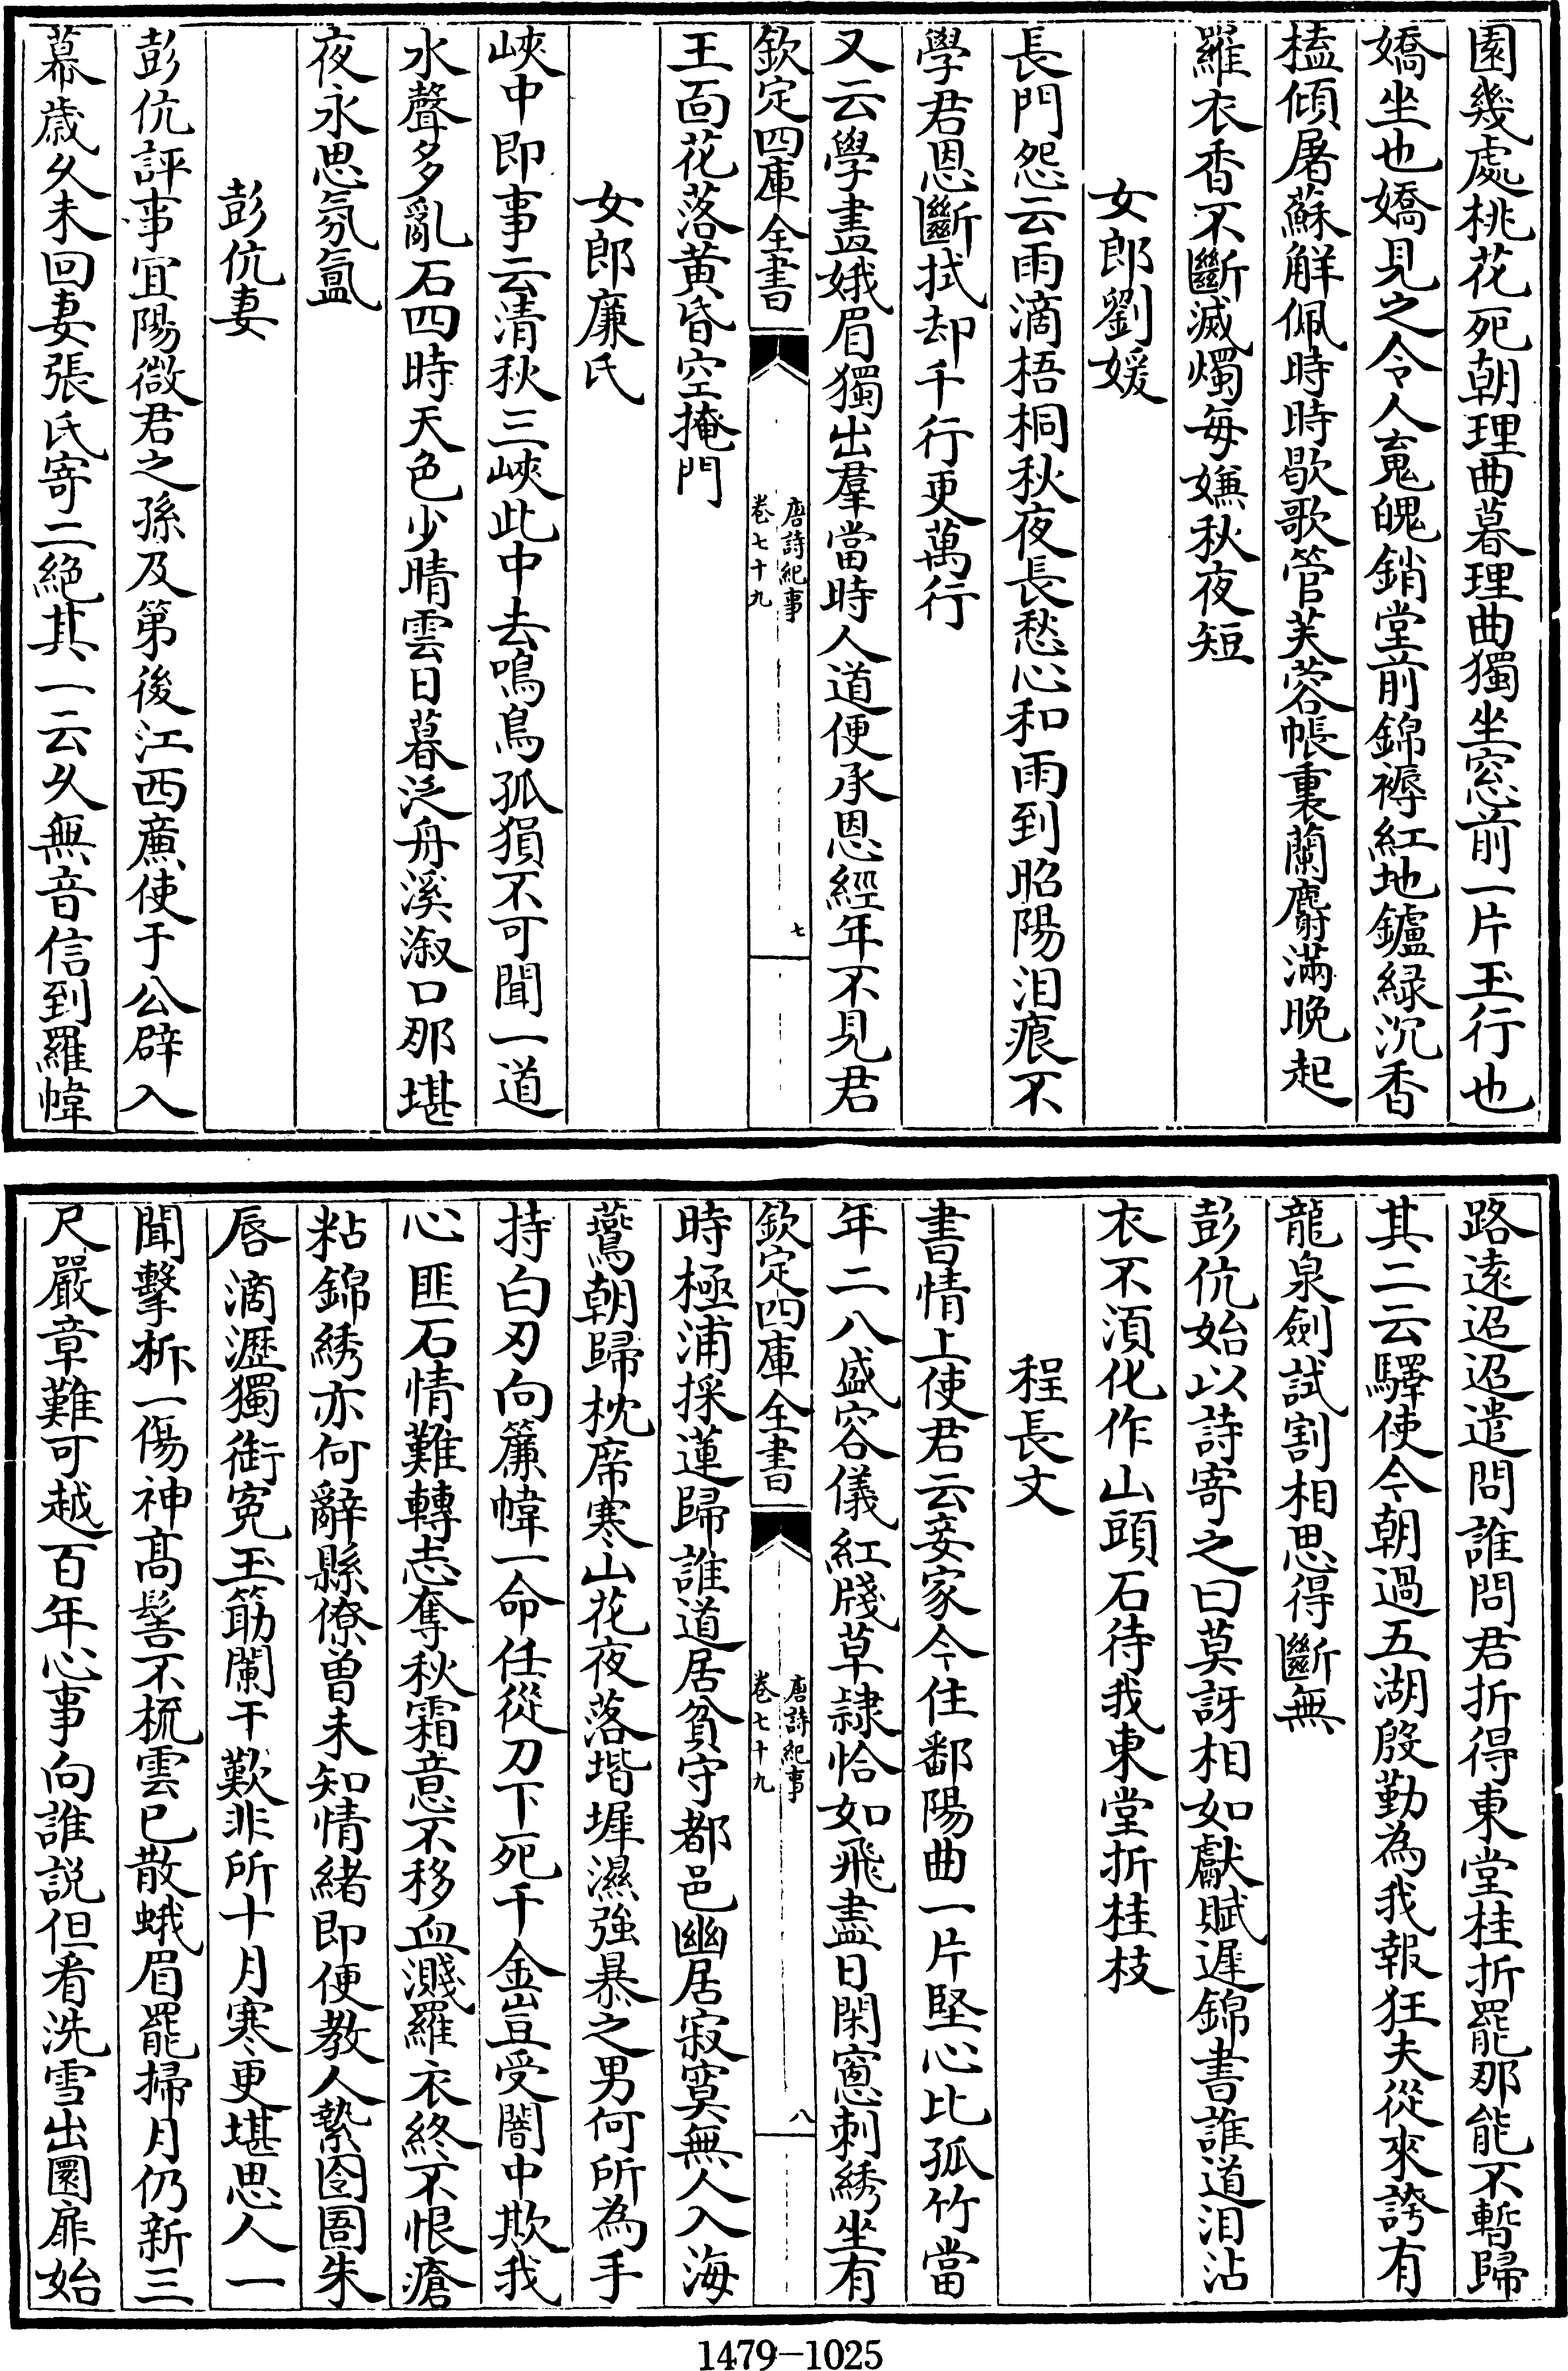 園幾處桃花死朝理曲暮理曲獨坐窓前一片玉行也
嬌坐也嬌見之令人䰟魄銷堂前錦褥紅地鑪緑沉香
榼傾屠蘇解佩時時歇歌管芙蓉帳裏蘭麝滿晚起
羅衣香不斷滅燭每嫌秋夜短
女郎劉媛
長門怨云雨滴梧桐秋夜長愁心和雨到昭陽淚痕不
學君恩斷拭却千行更萬行
又云學畫娥眉獨出羣當時人道便承恩經年不見君
欽定四庫全書
唐詩紀事
卷七十九
七
王面花落黄昏空掩門
女郎廉氏
峽中即事云清秋三峽此中去鳴鳥孤猿不可聞一道
水聲多亂石四時天色少晴雲日暮泛舟溪溆口那堪
夜永思氛氲
彭伉妻
彭伉評事宜陽徵君之孫及第後江西㢘使于公辟入
幕歳久未回妻張氏寄二絶其一云久無音信到羅幃
路遠迢迢遣問誰問君折得東堂桂折罷那能不暫歸
其二云驛使今朝過五湖殷勤為我報狂夫從來誇有
龍泉劍試割相思得斷無
彭伉始以詩寄之曰莫訝相如獻賦遲錦書誰道淚沾
衣不須化作山頭石待我東堂折桂枝
程長文
書情上使君云妾家今住鄱陽曲一片堅心比孤竹當
年二八盛容儀紅牋草隸恰如飛盡日閑窻刺綉坐有
欽定四庫全書
唐詩紀事
卷七十九
八
時極浦採蓮歸誰道居貧守都邑幽居寂寞無人入海
鷰朝歸枕席寒山花夜落堦墀濕強暴之男何所為手
持白刃向簾幃一命任從刀下死千金豈受闇中欺我
心匪石情難轉志奪秋霜意不移血濺羅衣終不恨瘡
粘錦綉亦何辭縣僚曽未知情緒即便教人縶囹圄朱
唇滴瀝獨銜寃玉筯闌干歎非所十月寒更堪思人一
聞擊柝一傷神髙髻不梳雲已散蛾眉罷掃月仍新三
尺嚴章難可越百年心事向誰説但看洗雪出圜扉始
1479-1025